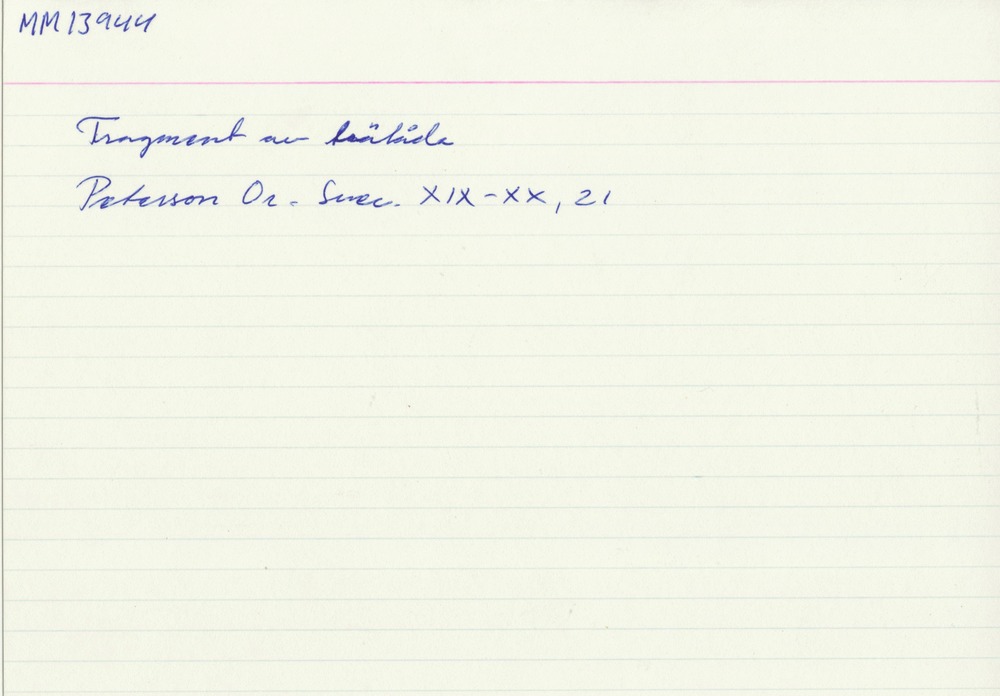 MM13944
Fragment av trälåda
Peterson Or. Suec. XIX-XX, 21